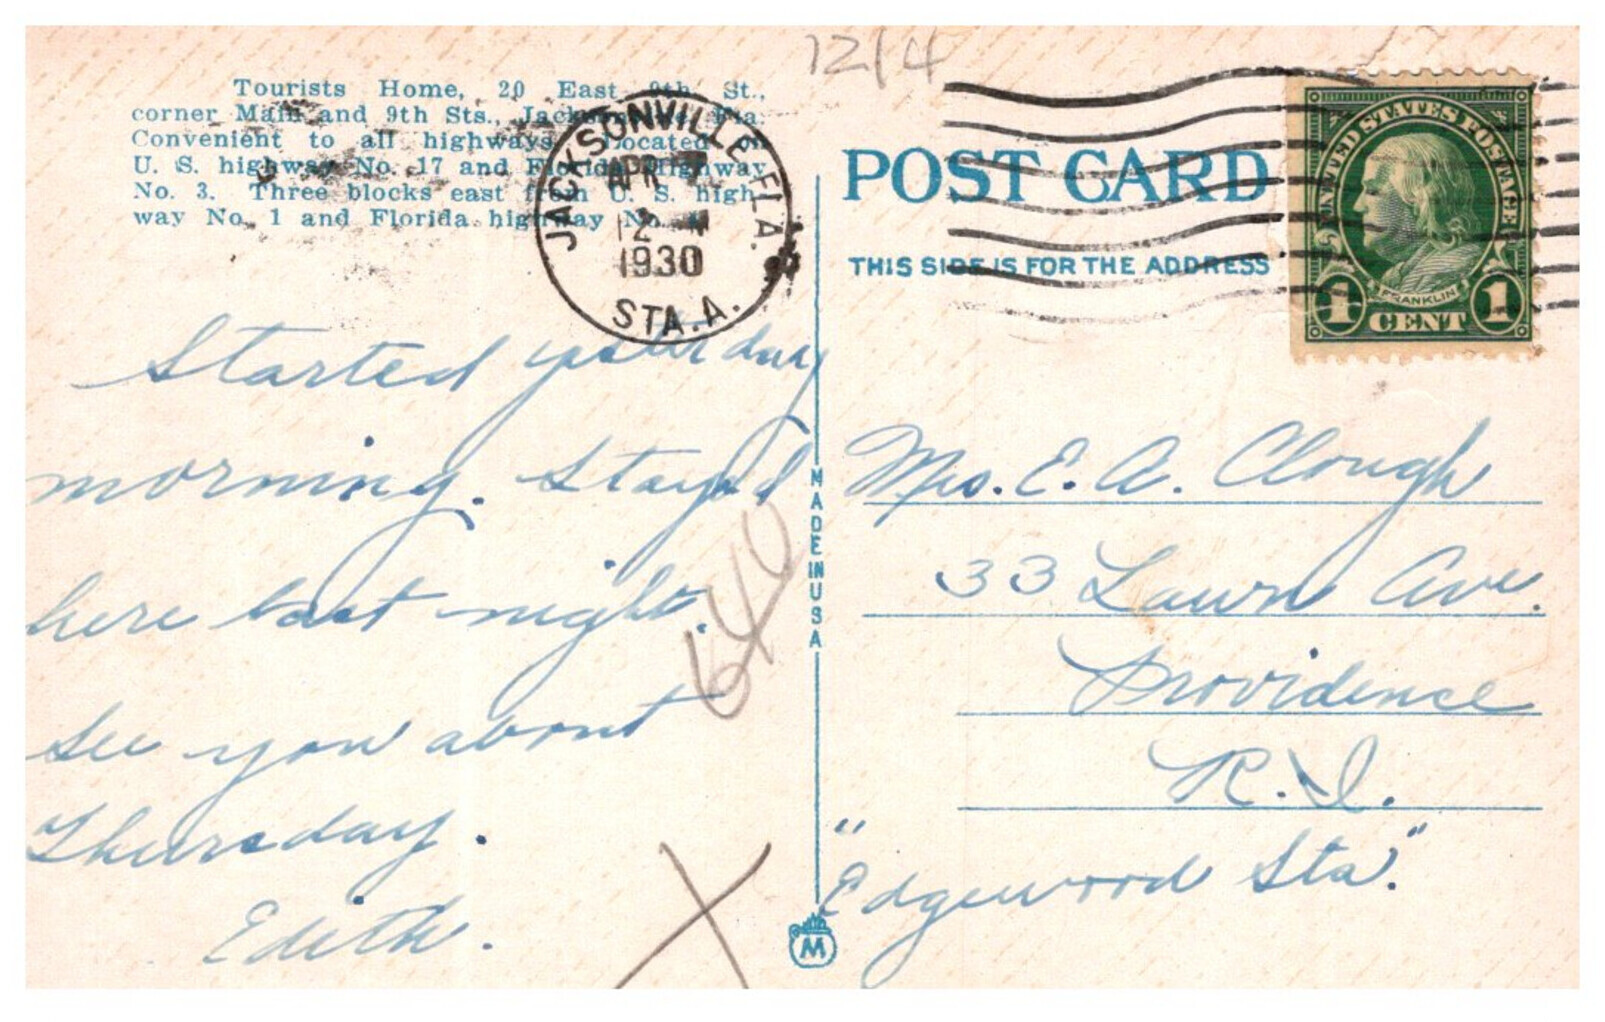 12/4
Tourists Home, 20 East 9th St.,
corner Main and 9th Sts., Jacksonville, Fla.
Convenient to all highways. Located on
U. S. highway No. 17 and Florida Highway
No. 3. Three blocks east from U. S. high-
way No. 1 and Florida highway No. 4
JACKSONVILLE FLA.
APR 
12 M
1930
STA. A.
Started yesterday
morning. Stayed
here last night.
See you about
Thursday.
Edith.
640
X
MADE IN USA
M
POST CARD
THIS SIDE IS FOR THE ADDRESS
UNITED STATES POSTAGE
FRANKLIN
1 CENT 1
Mrs. E. A. Clough
33 Lawn Ave.
Providence
R. I.
"Edgewood Sta."